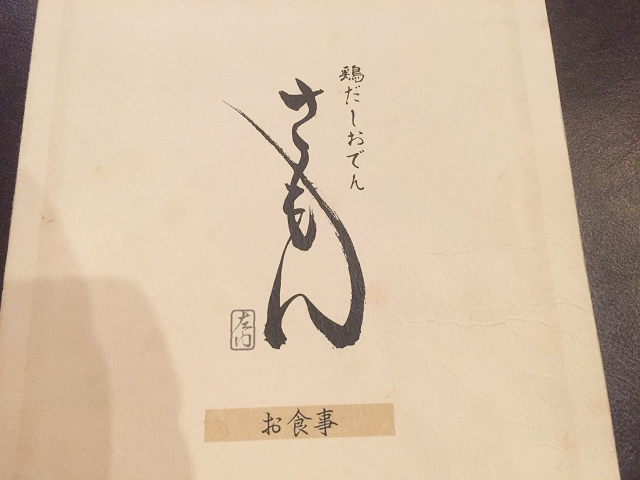 鶏だしおでん
さもん
左門
お食事